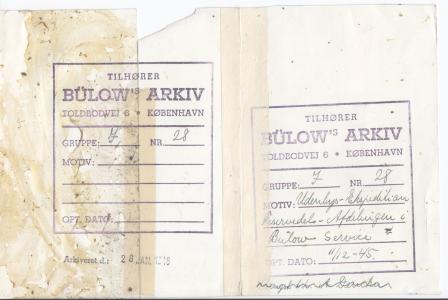 TILHØRER
BÜLOW'S ARKIV
TOLDBODVEJ 6 • KØBENHAVN
GRUPPE: 7 NR. 28
MOTIV:
OPT. DATO:
Arkiveret d.: 28 JAN. 1946
TILHØRER
BÜLOW'S ARKIV
TOLDBODVEJ 6 • KØBENHAVN
GRUPPE: 7 NR. 28
MOTIV: Udenbys-Ekspedition
Reservedels-Afdelingen i
Bülow Service
OPT. DATO: 1/12-45.